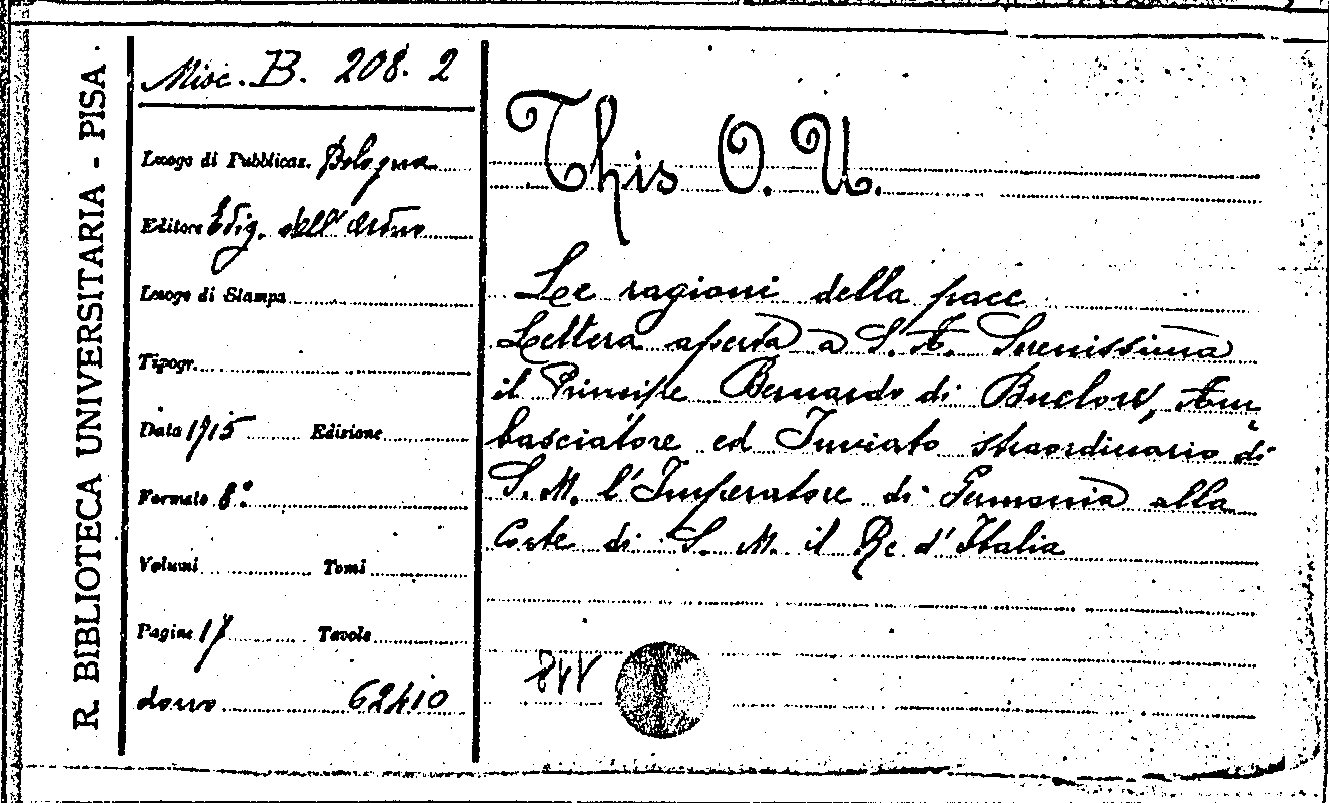 R. BIBLIOTECA UNIVERSITARIA - PISA.
Misc. B. 208. 2
Luogo di Pubblicaz. Bologna
Editore Edig. dell'
Luogo di Stampa
Tipogr.
Data 1915 Edizione
Formato 8°
Volumi Tomi
Pagine 17 Tavole
dono 62410
This O. U.
Le ragioni della pace
Lettera aperta a S. A. Serenissima
il Principe Bernardo di Buelow, Am-
basciatore ed Inviato straordinario di
S. M. l'Imperatore di Germania alla
Corte di S. M. il Re d'Italia